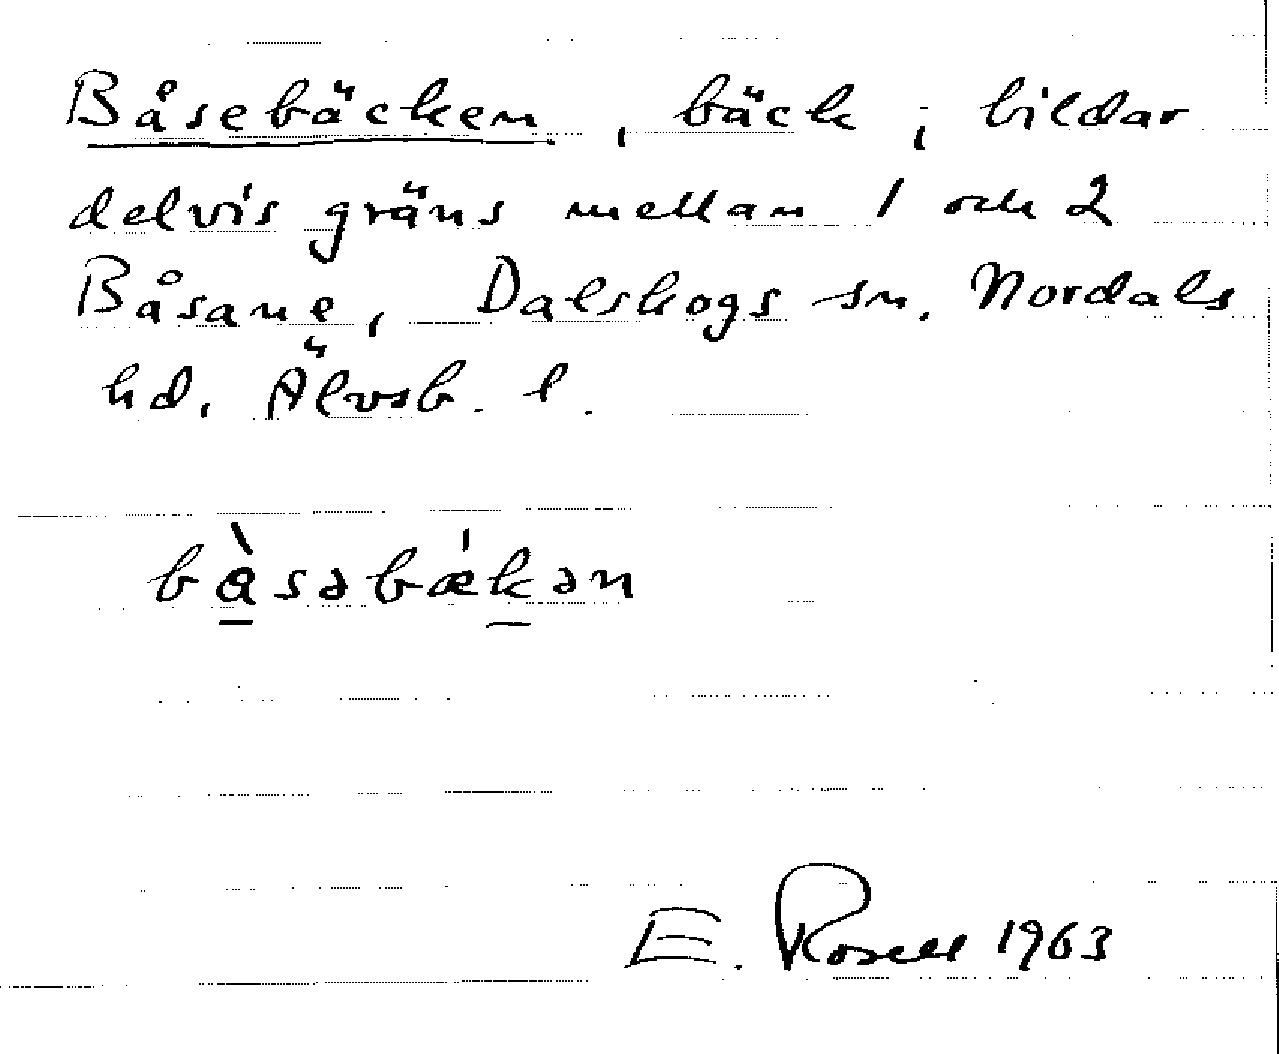 Båsebäcken, bäck; bildar
delvis gräns mellan 1 och 2
Båsane, Dalskogs sn. Nordals
hd. Älvsb. l.
bàsəbǽkən
E. Rosell 1963